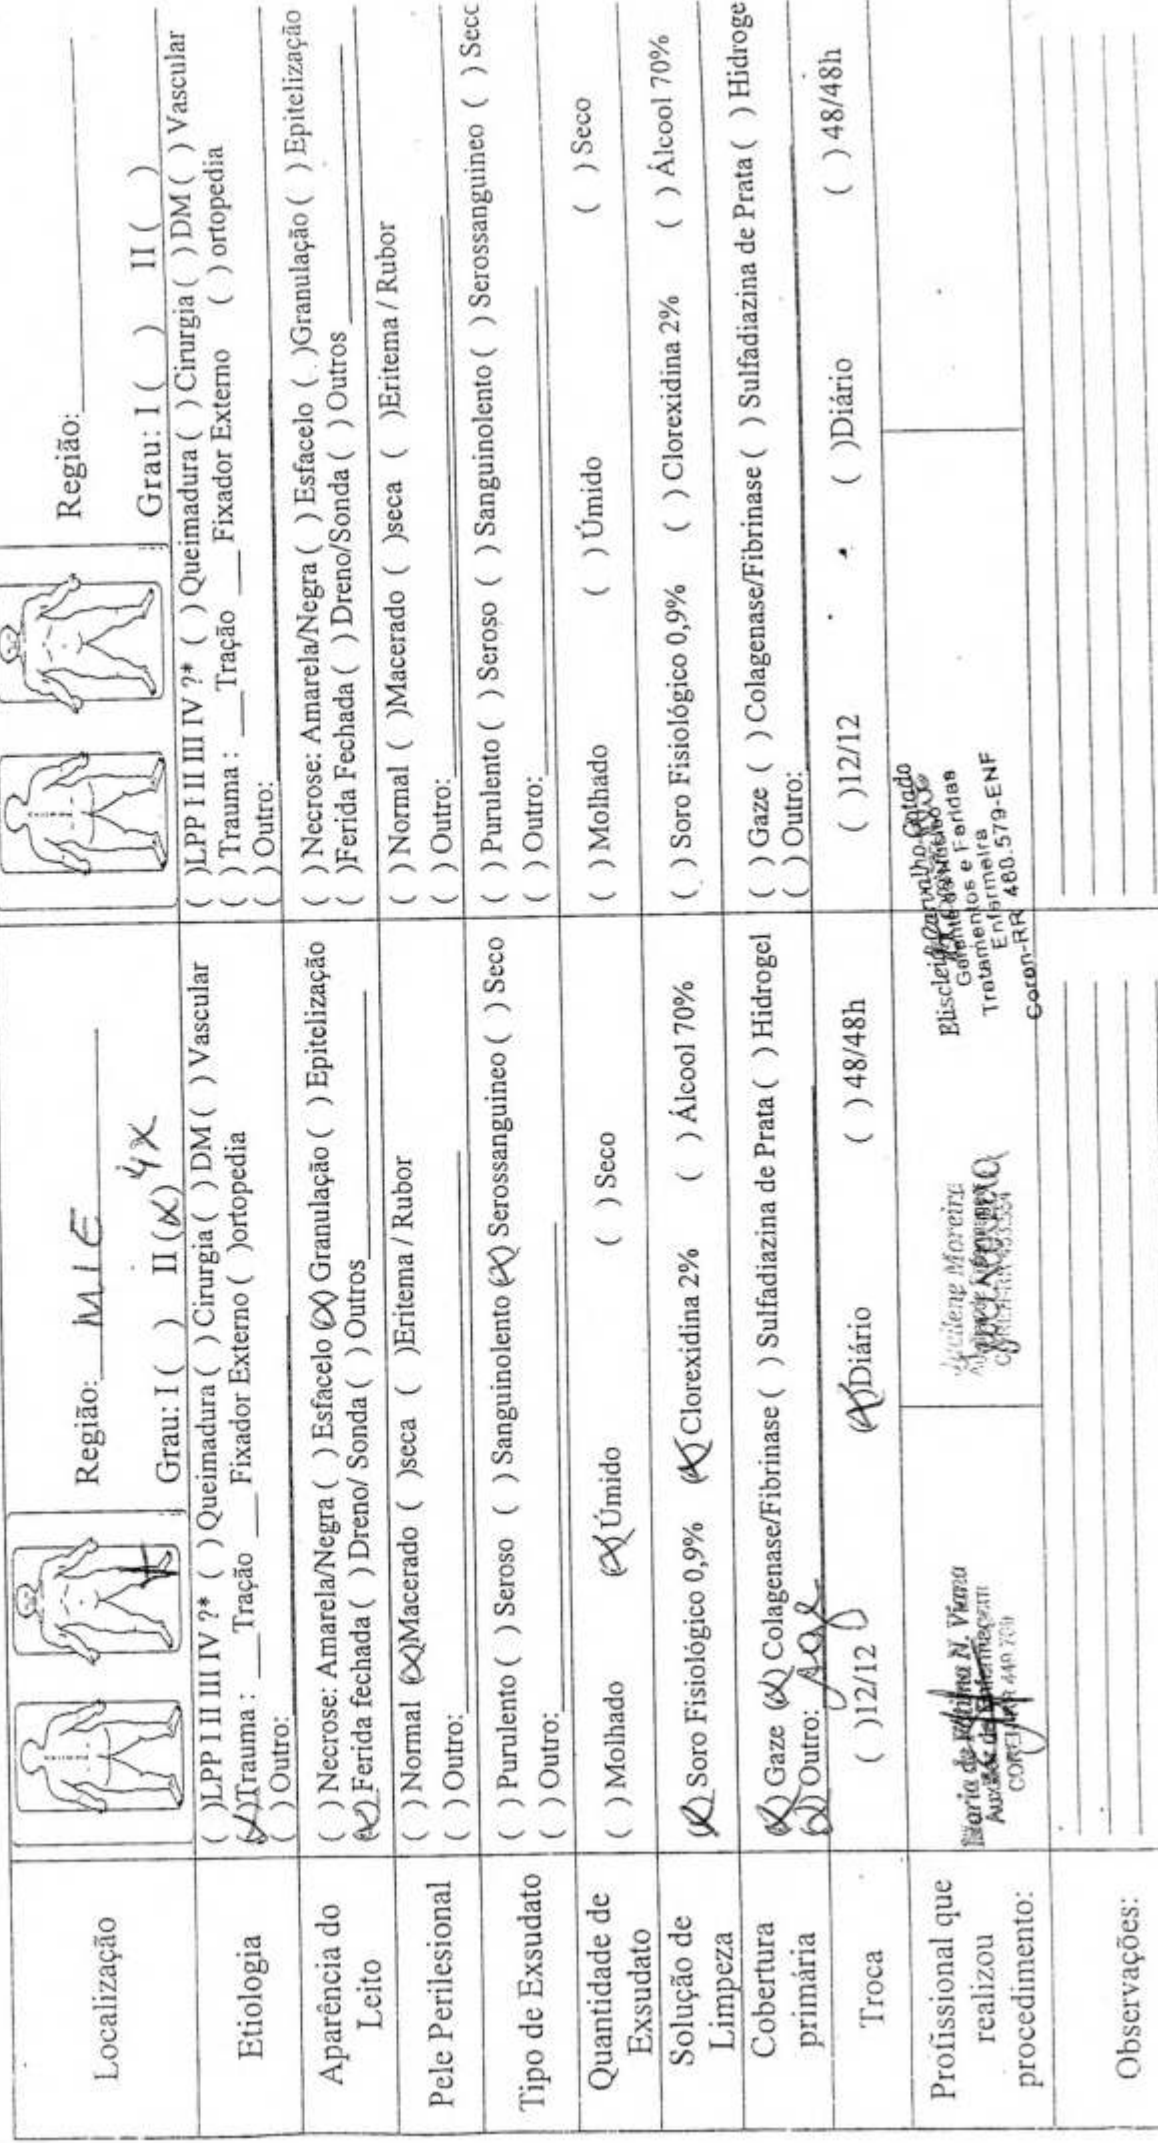 Localização
Região: MIE
Grau: I ( ) II (x) 4x
Região:
Grau: I ( ) II ( )
Etiologia
( )LPP I II III IV ?* ( ) Queimadura ( ) Cirurgia ( ) DM ( ) Vascular
(x)Trauma : ___Tração ___Fixador Externo ( )ortopedia
( ) Outro:
( )LPP I II III IV ?* ( ) Queimadura ( ) Cirurgia ( ) DM ( ) Vascular
( ) Trauma : ___Tração ___Fixador Externo ( ) ortopedia
( ) Outro:
Aparência do
Leito
( ) Necrose: Amarela/Negra ( ) Esfacelo (x) Granulação ( ) Epitelização
(x) Ferida fechada ( ) Dreno/ Sonda ( ) Outros
( ) Necrose: Amarela/Negra ( ) Esfacelo ( )Granulação ( ) Epitelização
( )Ferida Fechada ( ) Dreno/Sonda ( ) Outros
Pele Perilesional
( ) Normal (x)Macerado ( )seca ( )Eritema / Rubor
( ) Outro:
( ) Normal ( )Macerado ( )seca ( )Eritema / Rubor
( ) Outro:
Tipo de Exsudato
( ) Purulento ( ) Seroso ( ) Sanguinolento (x) Serossanguineo ( ) Seco
( ) Outro:
( ) Purulento ( ) Seroso ( ) Sanguinolento ( ) Serossanguineo ( ) Secc
( ) Outro:
Quantidade de
Exsudato
( ) Molhado (x) Úmido ( ) Seco
( ) Molhado ( ) Úmido ( ) Seco
Solução de
Limpeza
(x) Soro Fisiológico 0,9% (x) Clorexidina 2% ( ) Álcool 70%
( ) Soro Fisiológico 0,9% ( ) Clorexidina 2% ( ) Álcool 70%
Cobertura
primária
(x) Gaze (x) Colagenase/Fibrinase ( ) Sulfadiazina de Prata ( ) Hidrogel
(x) Outro:
( ) Gaze ( ) Colagenase/Fibrinase ( ) Sulfadiazina de Prata ( ) Hidroge
( ) Outro:
Troca
( )12/12 (x)Diário ( ) 48/48h
( )12/12 ( )Diário ( ) 48/48h
Profissional que
realizou
procedimento:
Maria de Fátima N. Viana
Auxiliar de Enfermagem
Moreira
Carvalho
Tratamentos e Feridas
Enfermeira
Coren-RR 460.579-ENF
Observações: